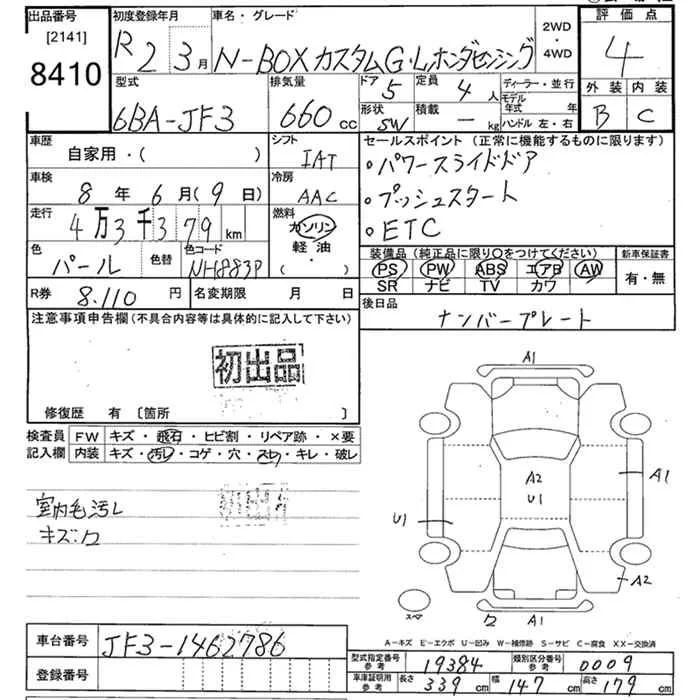 出品番号 初度登録年月 車名・グレード 2WD・4WD 評価点
[2141]
8410
R2 3月
N-BOXカスタムG・Lホンダセンシング
4
型式 排気量 ドア 5 定員 4人 ディーラー・並行
外装 内装
6BA-JF3 660cc
形状 SW 積載 - kg モデル年式 年
ハンドル 左・右
B C
車歴 シフト セールスポイント (正常に機能するものに限ります)
自家用・( ) IAT
•パワースライドドア
車検 冷房
8年6月(9日) AAC
•プッシュスタート
走行 燃料
4万3千379km ガソリン
•ETC
軽油
・( )
色 色替 色コード
パール NH883P
装備品 (純正品に限り○をつけてください) 新車保証書
PS PW ABS エアB AW
SR ナビ TV カワ
有・無
R券 8.110円 名変期限 月 日
後日品
ナンバープレート
注意事項申告欄(不具合内容等は具体的に記入して下さい)
初出品
修復歴 有 [箇所 ]
検査員 FW キズ・飛石・ヒビ割・リペア跡・×要
記入欄 内装 キズ・汚レ・コゲ・穴・スレ・キレ・破レ
室内毛汚レ
キズ:ワ
A1
A2
U1
A1
U1
A2
ワ A1
スペア
A-キズ E-エクボ U-凹み W-補修跡 S-サビ C-腐食 XX-交換済
車台番号 JF3-1462786
登録番号
型式指定番号 参考 19384 類別区分番号 参考 0009
車庫証明用 参考 長さ 339cm 幅 147cm 高さ 179cm